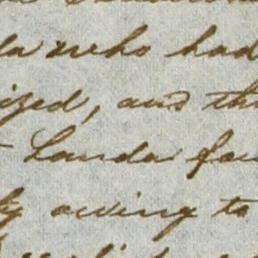 la who had
ized, and th
Landa fou
ly owing to